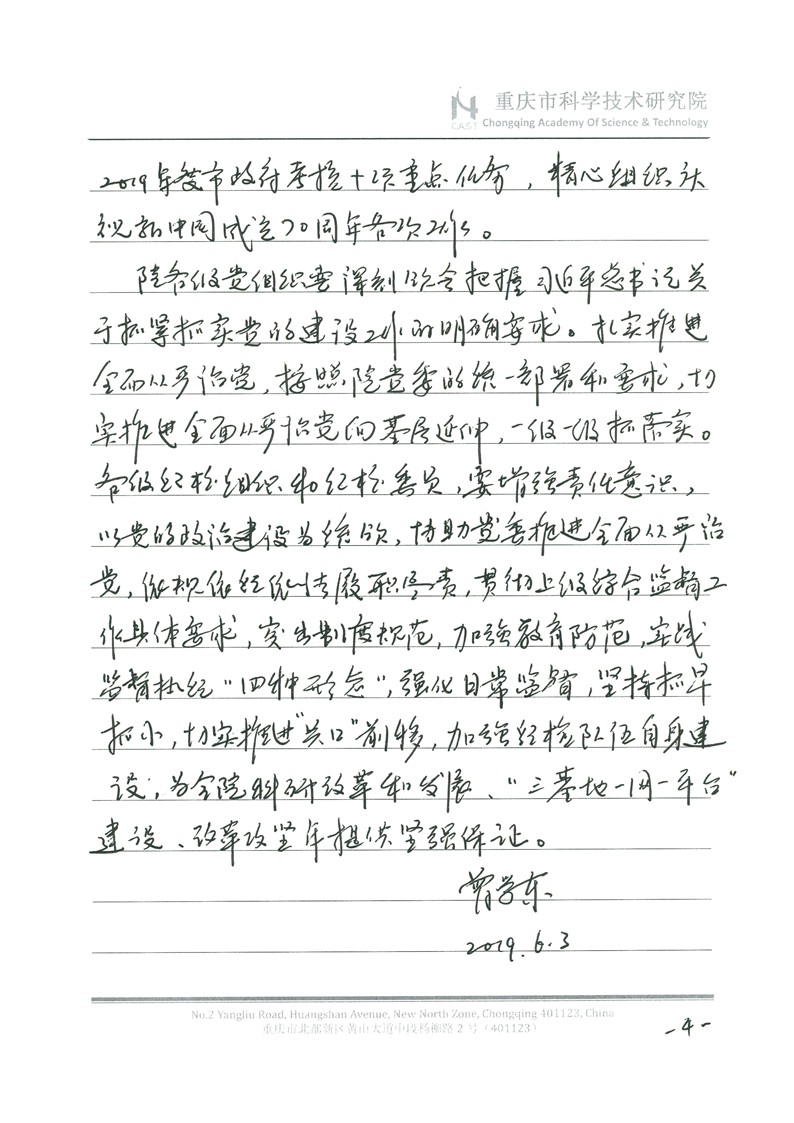 重庆市科学技术研究院
CAST Chongqing Academy Of Science & Technology
2019年度市政府考核十项重点任务，精心组织庆
祝新中国成立70周年各项工作。
院各级党组织要深刻领会把握习近平总书记关
于抓紧抓实党的建设工作的明确要求。扎实推进
全面从严治党，按照院党委的统一部署和要求，切
实推进全面从严治党向基层延伸，一级一级抓落实。
各级纪检组织和纪检委员，要增强责任意识，
以党的政治建设为统领，协助党委推进全面从严治
党，依规依纪依法履职尽责，贯彻上级综合监督工
作具体要求，突出制度规范，加强教育防范，实践
监督执纪“四种形态”，强化日常监督，坚持抓早
抓小，切实推进“关口”前移，加强纪检队伍自身建
设，为全院科研改革和发展、“三基地一网一平台”
建设、改革攻坚年提供坚强保证。
曾学东
2019.6.3
No.2 Yangliu Road, Huangshan Avenue, New North Zone, Chongqing 401123, China
重庆市北部新区黄山大道中段杨柳路2号（401123）
-4-